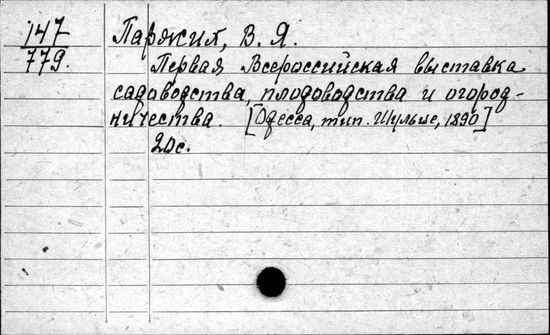 147
779.
Паркил, В. Я.
Первая Всероссийская выставка
садоводства, плодоводства и огород-
ничества. [Одесса, тип. Шульце, 1890]
20с.